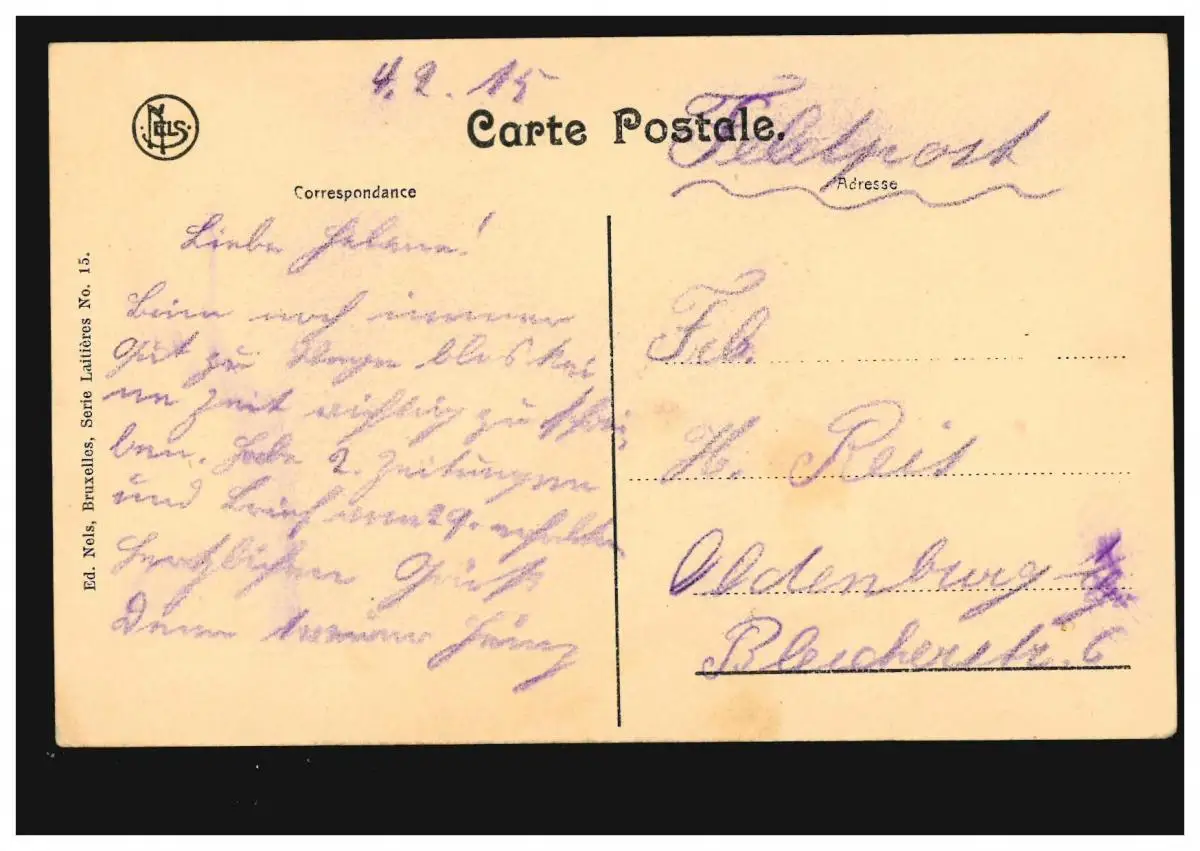 4.2.15
NELS
Carte Postale.
Feldpost
Correspondance
Adresse
Liebe Helene!
Bin noch immer
Gut zu Wege blos kei
ne Zeit richtig zu schrei
ben. Habe 2. Zeitungen
und Brief vom 29. erhalten
Herzlichen Gruß
Dein treuer
Frl.
H. Reis
Oldenburg
Bleicherstr. 6
Ed. Nels, Bruxelles, Serie Laitières No. 15.